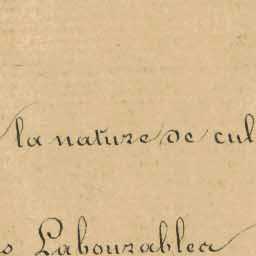 la nature de cul
s Labourables